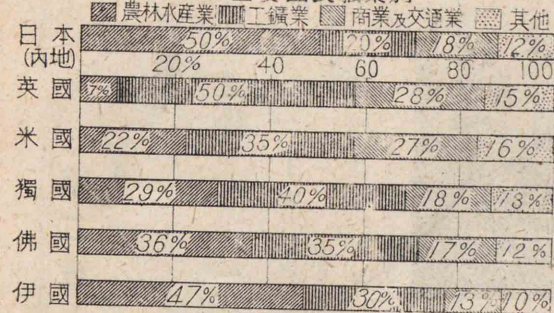 農林水産業 工鑛業 商業及交通業 其他
日本 50% 20% 18% 12%
(內地) 20% 40 60 80 100
英國 7% 50% 28% 15%
米國 22% 35% 27% 16%
獨國 29% 40% 18% 13%
佛國 36% 35% 17% 12%
伊國 47% 30% 13% 10%